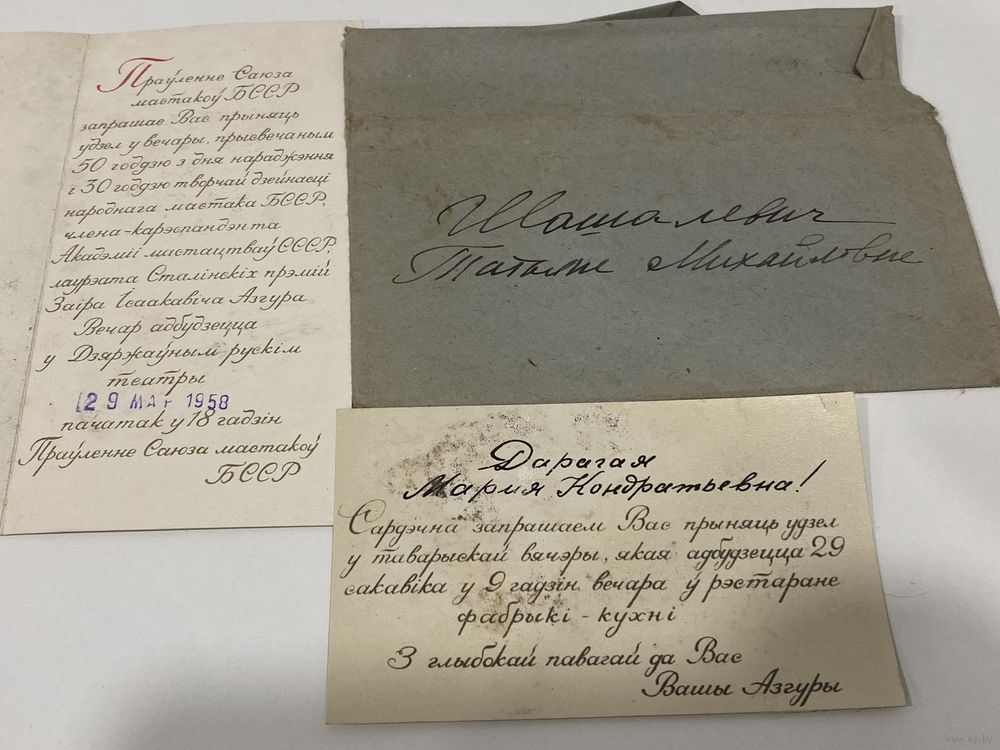 Праўленне Саюза
мастакоў БССР
запрашае Вас прыняць
удзел у вечары, прысвечаным
50 годдзю з дня нараджэння
і 30 годдзю творчай дзейнасці
народнага мастака БССР,
члена-карэспандэнта
Акадэміі мастацтваў СССР,
лаурэата Сталінскіх прэмій
Заіра Ісаакавіча Азгура
Вечар адбудзецца
у Дзяржаўным рускім
театры
29 МАР 1958
пачатак у 18 гадзін
Праўленне Саюза мастакоў
БССР
Шашалевич
Татьяне Михайловне
Дарагая
Мария Кондратьевна!
Сардэчна запрашаем Вас прыняць удзел
у таварыскай вячэры, якая адбудзецца 29
сакавіка у 9 гадзін вечара ў рэстаране
фабрыкі - кухні
З глыбокай павагай да Вас
Вашы Азгуры
www.ay.by